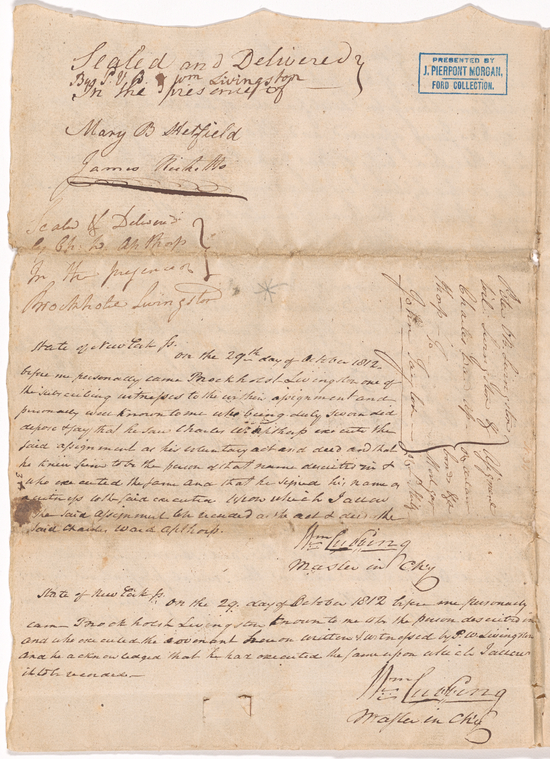 Sealed and Delivered
By P. V. B & Wm Livingston
In the presence of
PRESENTED BY
J. PIERPONT MORGAN,
FORD COLLECTION.
Mary B Hetfield
James Ricketts
Sealed & Deliverd
by Ch: W. Apthorp
In the presence of
Brockholst Livingston
State of New York ss.
On the 29th day of October 1812
before me personally came Brockholst Livingston one of
the subscribing witnesses to the within assignment and
personally well known to me who being duly sworn did
depose & say that he saw Charles W Apthorp execute the
said assignment as his voluntary act and deed and that
he knew him to be the person of that name described in &
who executed the same and that he signed his name as
a witness to the said execution Upon which I allow
the said Assignment to be recorded as the act & deed the
said Charles Ward Apthorp.
Wm Cushing
Master in Chy
State of New York ss.
On the 29. day of October 1812 before me personally
came Brockholst Livingston known to me to be the person described in
and who executed the covenant hereon written & witnessed by P. W. Livingston
and he acknowledged that he had executed the same upon which I allow
it to be recorded
Wm Cushing
Master in Chy
Livingston
Charles Ward Apthorp
To
John Taylor